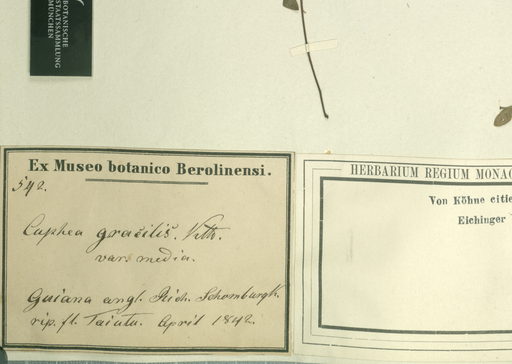 BOTANISCHE
STAATSSAMMLUNG
MÜNCHEN
Ex Museo botanico Berolinensi.
542.
Cuphea gracilis.
var. media.
Guiana angl. Rich. Schomburgk.
rip. fl. Takutu. April 1842.
HERBARIUM REGIUM MONAC
Von Köhne citie
Eichinger